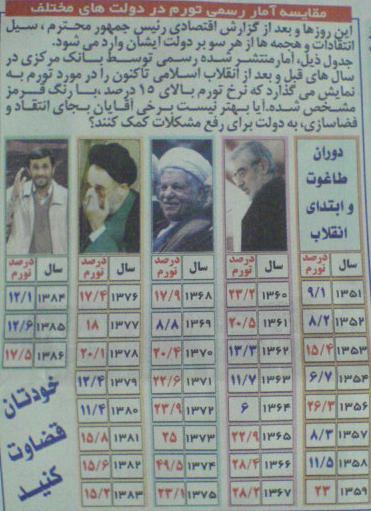 مقایسه آمار رسمی تورم در دولت های مختلف
این روزها و بعد از گزارش اقتصادی رئیس جمهور محترم ، سیل
انتقادات و هجمه ها از هر سو بر دولت ایشان وارد می شود.
جدول ذیل، آمار منتشر شده رسمی توسط بانک مرکزی در
سال های قبل و بعد از انقلاب اسلامی تاکنون را در مورد تورم به
نمایش می گذارد که نرخ تورم بالای ۱۵ درصد ،با رنگ قرمز
مشخص شده.آیا بهتر نیست برخی آقایان بجای انتقاد و
فضاسازی، به دولت برای رفع مشکلات کمک کنند؟
دوران
طاغوت
و ابتدای
انقلاب
سال درصد تورم
۱۳۵۱ ۹/۱
۱۳۵۲ ۸/۲
۱۳۵۳ ۱۵/۴
۱۳۵۴ ۶/۷
۱۳۵۶ ۲۶/۳
۱۳۵۷ ۸/۳
۱۳۵۸ ۱۱/۵
۱۳۵۹ ۲۳
سال درصد تورم
۱۳۶۰ ۲۳/۲
۱۳۶۱ ۲۰/۵
۱۳۶۲ ۱۳/۳
۱۳۶۳ ۱۱/۷
۱۳۶۴ ۶
۱۳۶۵ ۲۲/۹
۱۳۶۶ ۲۸/۴
۱۳۶۷ ۲۸/۲
سال درصد تورم
۱۳۶۸ ۱۷/۹
۱۳۶۹ ۸/۸
۱۳۷۰ ۲۰/۴
۱۳۷۱ ۲۲/۶
۱۳۷۲ ۲۳/۹
۱۳۷۳ ۲۵
۱۳۷۴ ۴۹/۵
۱۳۷۵ ۲۳/۱
سال درصد تورم
۱۳۷۶ ۱۷/۴
۱۳۷۷ ۱۸
۱۳۷۸ ۲۰/۱
۱۳۷۹ ۱۲/۴
۱۳۸۰ ۱۱/۴
۱۳۸۱ ۱۵/۸
۱۳۸۲ ۱۵/۶
۱۳۸۳ ۱۵/۲
سال درصد تورم
۱۳۸۴ ۱۲/۱
۱۳۸۵ ۱۲/۶
۱۳۸۶ ۱۷/۵
خودتان
قضاوت
کنید